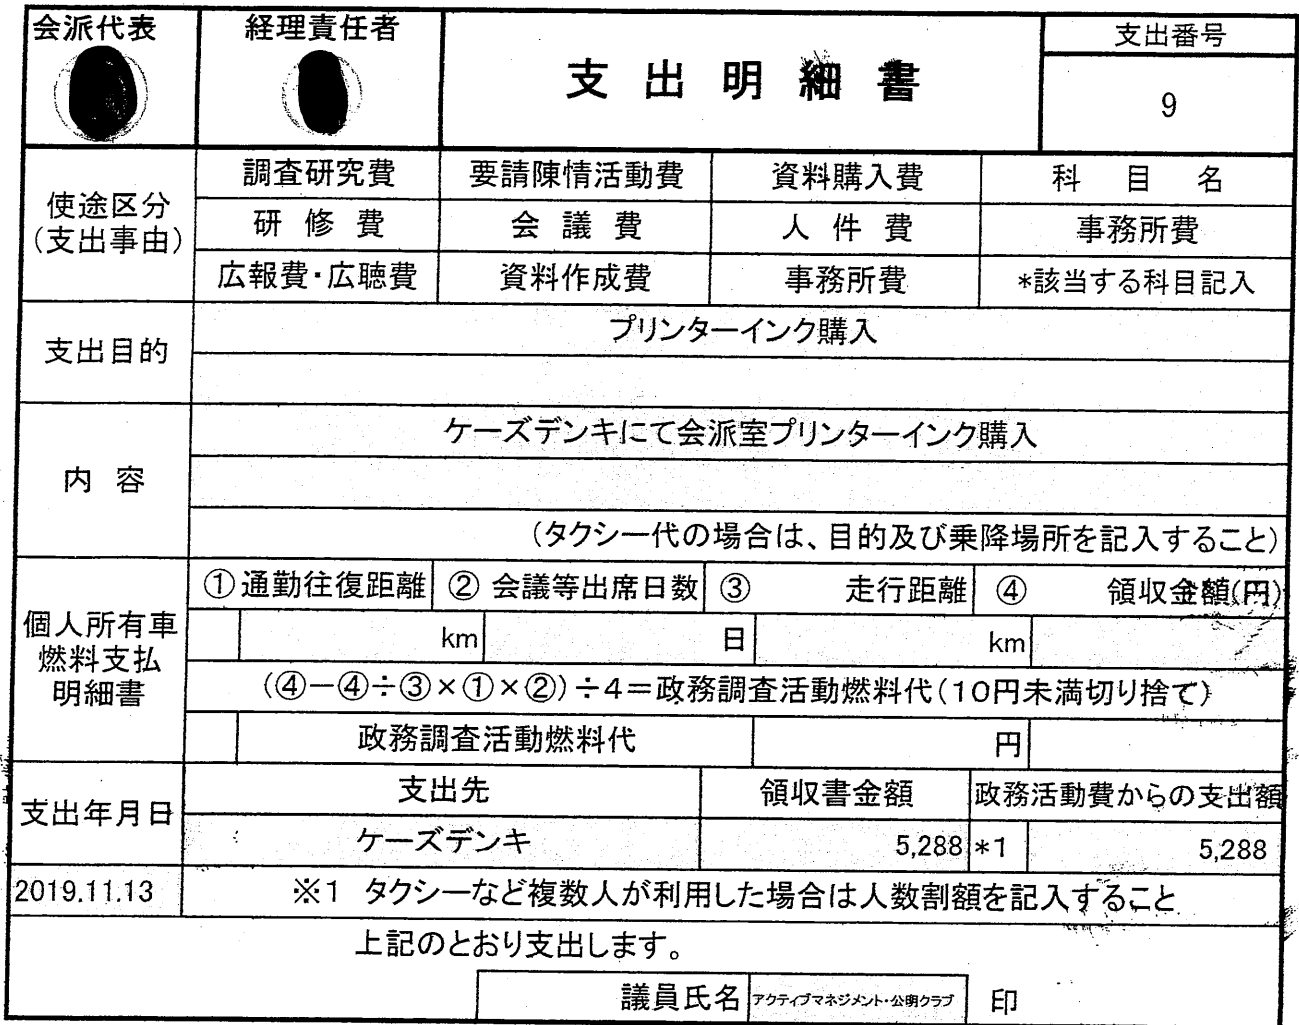 会派代表 経理責任者 支出明細書 支出番号
9
使途区分
(支出事由)
調査研究費 要請陳情活動費 資料購入費 科目名
研修費 会議費 人件費 事務所費
広報費・広聴費 資料作成費 事務所費 *該当する科目記入
支出目的
プリンターインク購入
内容
ケーズデンキにて会派室プリンターインク購入
(タクシー代の場合は、目的及び乗降場所を記入すること)
個人所有車
燃料支払
明細書
①通勤往復距離 ②会議等出席日数 ③走行距離 ④領収金額(円)
km 日 km
(④-④÷③×①×②)÷4=政務調査活動燃料代(10円未満切り捨て)
政務調査活動燃料代 円
支出年月日 支出先 領収書金額 政務活動費からの支出額
ケーズデンキ 5,288 *1 5,288
2019.11.13 ※1 タクシーなど複数人が利用した場合は人数割額を記入すること
上記のとおり支出します。
議員氏名 アクティブマネジメント・公明クラブ 印